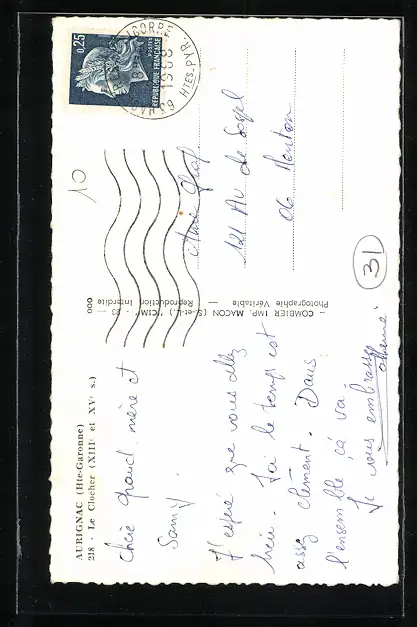 AURIGNAC (Hte-Garonne)
218 - Le Clocher (XIIIe et XVe s.)
Chère grand mère et
Samy.
J'espère que vous allez
bien. Ici le temps est
assez clément. Dans
l'ensemble, ça va.
Je vous embrasse
COMBIER IMP. MACON (S.-et-L.) "CIM" - 23 -
Photographie Véritable — Reproduction Interdite
000
0,25
POSTES
REPUBLIQUE FRANÇAISE
1968
HTES-PYR.
10
121 Av de Sospel
06 Menton
31